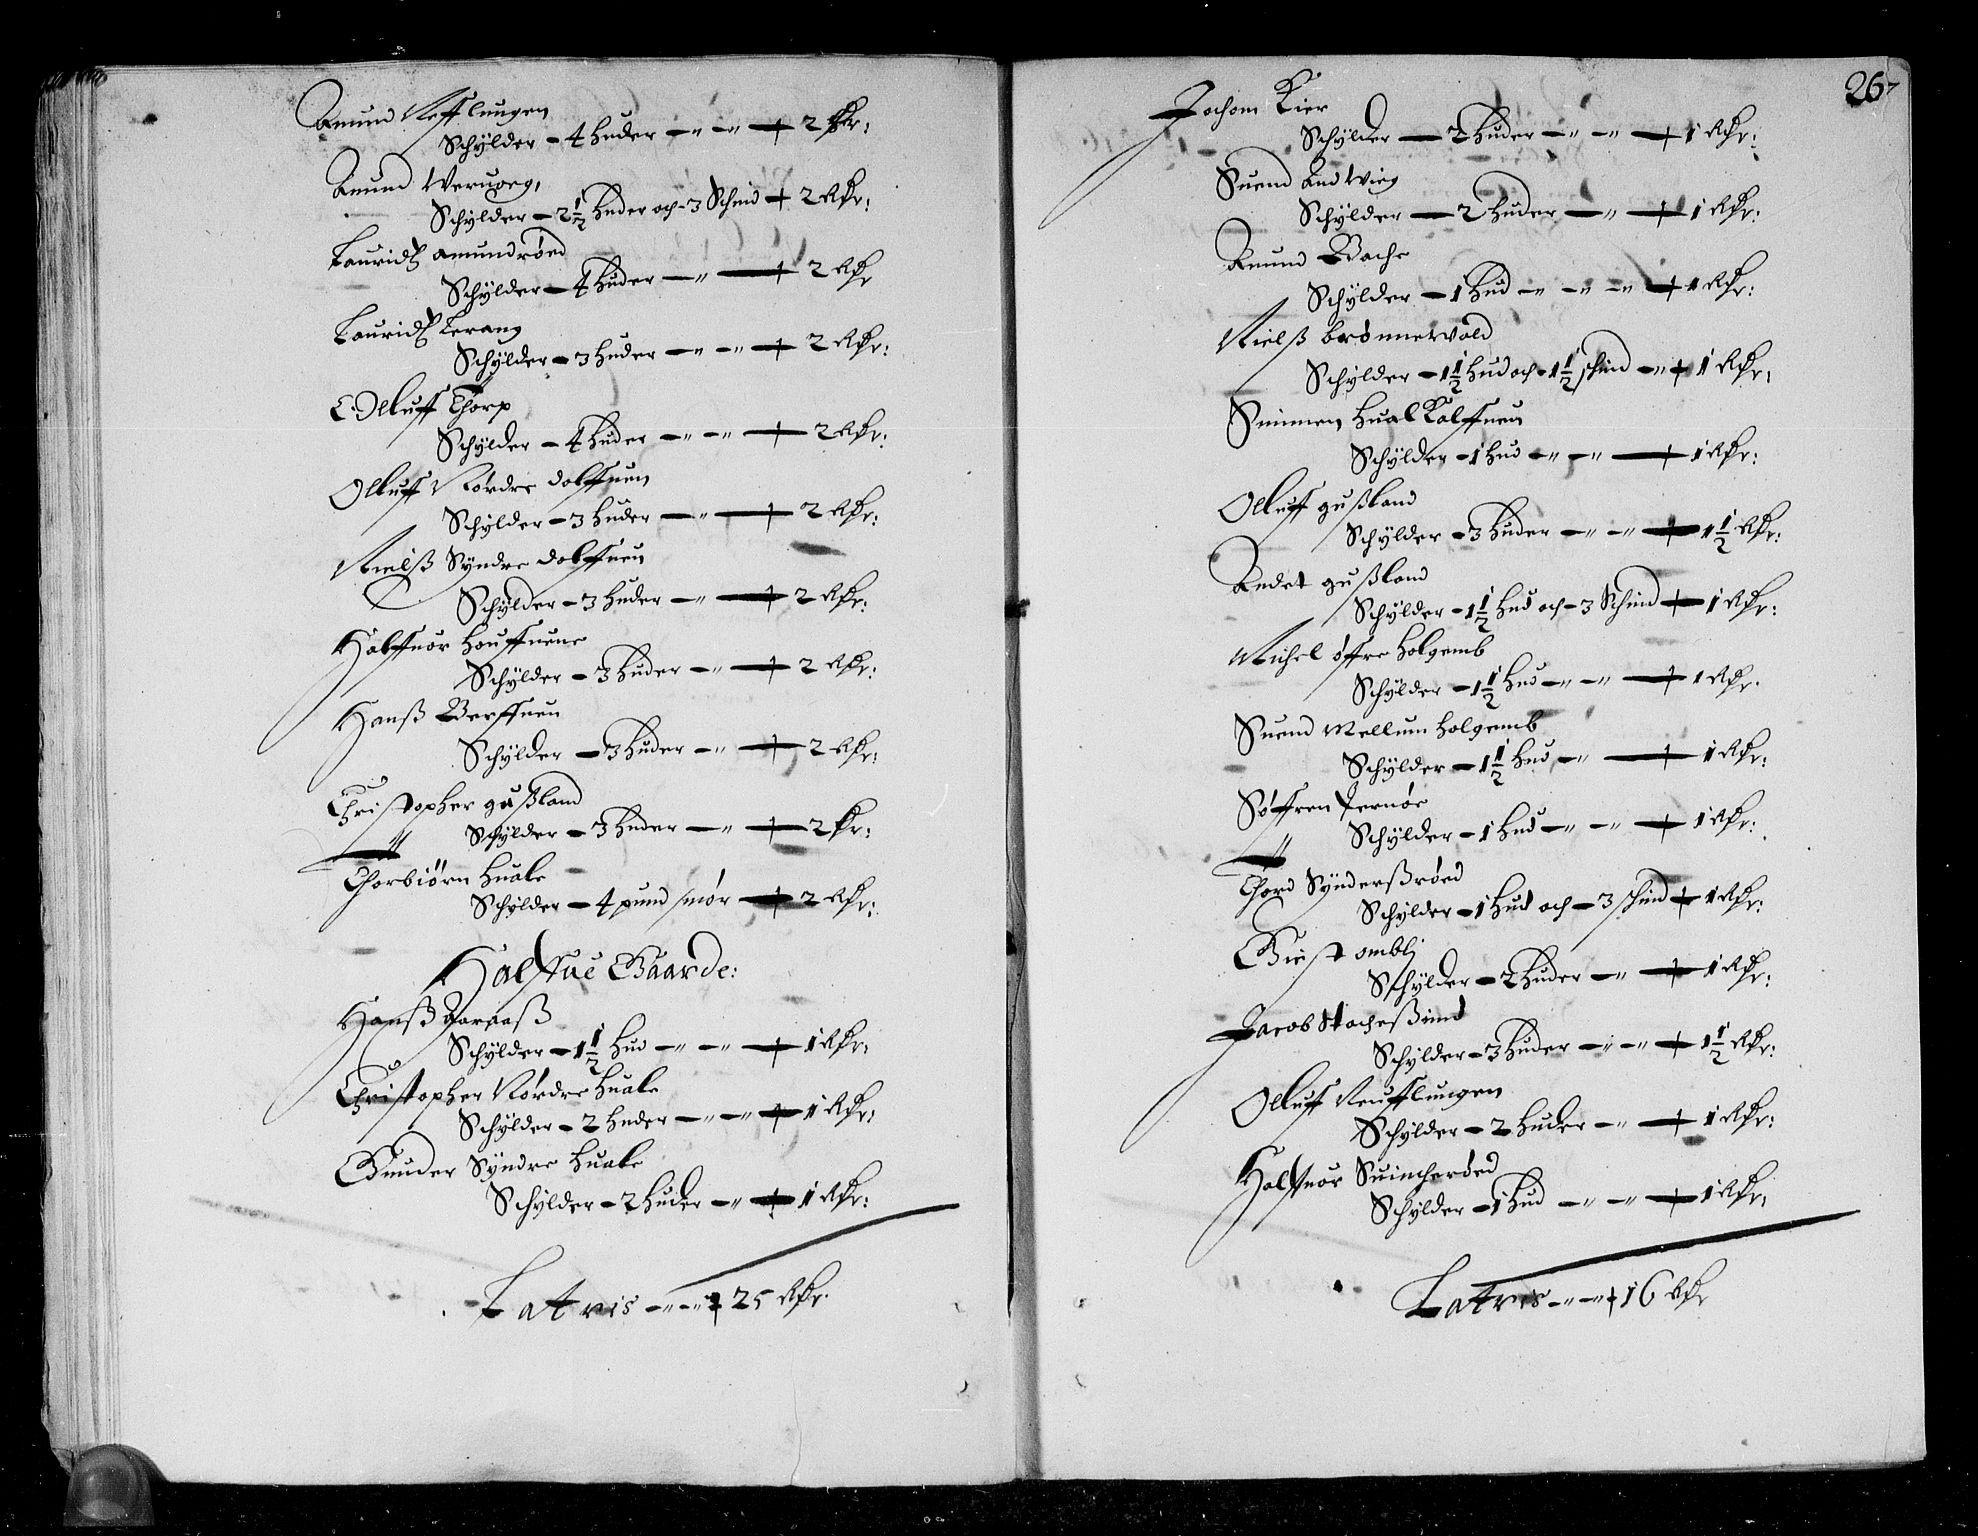 Amund Refflungen
Schÿlder - 4 huder - „ - „ - + 2 Rdr:
Amund Weruoeg,
Schÿlder - 2 1/2 huder och - 3 Schind + 2 Rdr:
Lauridtz amundrøed
Schÿlder - 4 huder - „ - + 2 Rdr
Lauridtz Lerang
Schÿlder - 3 huder - „ - „ - + 2 Rdr:
Olluff Thorp
Schÿlder - 4 huder - „ - „ - + 2 Rdr:
Olluff Nørdre dolffuen
Schÿlder - 3 huder - „ - + 2 Rdr:
Nielß Sÿndre dolffuen
Schÿlder - 3 huder - „ - + 2 Rdr:
Halffuor houffuene
Schÿlder - 3 huder - „ - + 2 Rdr:
Hanß Berffuen
Schÿlder - 3 huder - „ - + 2 Rdr:
Christopher gußland
Schÿlder - 3 huder - „ - + 2 dr:
Thorbiörn huale
Schÿlder - 4 pund smør - + 2 Rdr:
Halffue Gaarde:
Hanß Aaraaß
Schÿlder - 1 1/2 hud - „ - „ - + 1 Rdr:
Christopher Nørdre huale
Schÿlder - 2 huder - „ - „ - + 1 Rdr:
Gunder Sÿndre huale
Schÿlder - 2 huder - „ - + 1 Rdr:
Latris - „ - „ + 25 Rdr.
267
Jochom Kier
Schÿlder - 2 huder - „ - „ - + 1 Rdr:
Suend Andwieg
Schÿlder - 2 huder - „ - + 1 Rdr:
Amund Bache
Schÿlder - 1 hud - „ - „ - „ - + 1 Rdr:
Nielß brønnewald
Schÿlder - 1 1/2 hud och - 1 1/2 schind - „ + 1 Rdr,
Simmen hualkalffuen
Schÿlder - 1 hud - „ - „ - + 1 Rdr:
Olluff gußland
Schÿlder - 3 huder - „ - „ - + 1 1/2 Rdr:
Andet gußland
Schÿlder - 1 1/2 hud och - 3 Schind + 1 Rdr:
Michel øffre holgemb
Schÿlder - 1 1/2 hud - „ - „ - + 1 Rdr.
Suend Mellum holgemb
Schÿlder - 1 1/2 hud - „ - + 1 Rdr:
Søffren Jernøe
Schÿlder - 1 hud - „ - „ - + 1 Rdr:
Thord Sÿnderßrøed
Schÿlder - 1 hud och - 3 schind + 1 Rdr:
Giest ombli
Schÿlder - 2 huder - „ - + 1 Rdr:
Jacob Stocheßund
Schÿlder - 3 huder - „ - „ - + 1 1/2 Rdr:
Olluff Reufflungen
Schÿlder - 2 huder - „ - + 1 Rdr:
Halffuor Suincherøed
Schÿlder - 1 hud - „ - „ - + 1 Rdr,
Latris - „ - „ + 16 Rdr